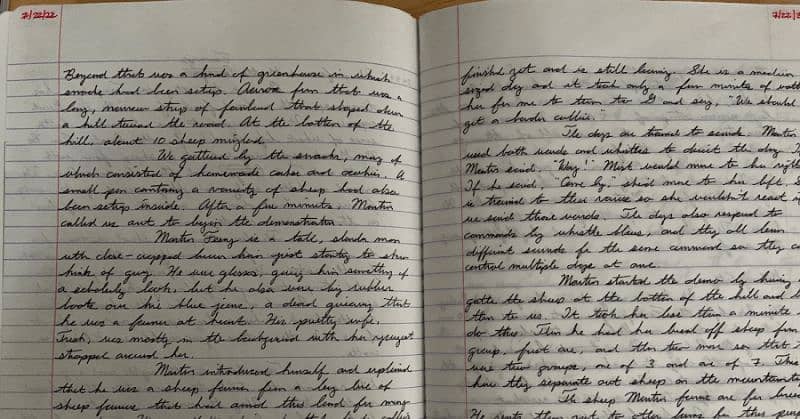 7/22/22
Beyond that was a kind of greenhouse in which
snacks had been setup. Across from that was a
long, narrow strip of farmland that sloped down
a hill toward the road. At the bottom of the
hill, about 10 sheep mingled.
We gathered by the snacks, many of
which consisted of homemade cakes and cookies. A
small pen containing a variety of sheep had also
been setup inside. After a few minutes, Martin
called us out to begin the demonstration
Martin is a tall, slender man
with close-cropped brown hair just starting to show
hints of gray. He wore glasses, giving him something of
a scholarly look, but he also wore big rubber
boots over his blue jeans, a dead giveaway that
he was a farmer at heart. His pretty wife,
was mostly in the background with her youngest
strapped around her.
Martin introduced himself and explained
that he was a sheep farmer from a long line of
sheep farmers that had owned this land for many
7/22/2
finished yet and is still learning. She is a medium
sized dog and it took only a few minutes of watching
her for me to turn to G and say, "We should
get a border collie."
The dogs are trained to sounds. Martin
used both words and whistles to direct the dog. If
Martin said, "Way!" Mist would move to her right
If he said, "Come by," she'd move to her left. S
is trained to their voices so she wouldn't react if
we said those words. The dogs also respond to
commands by whistle blows, and they all learn
different sounds for the same command so they can
control multiple dogs at once.
Martin started the demo by having
gather the sheep at the bottom of the hill and b
them to us. It took her less than a minute
do this. Then he had her break off sheep from
group, first one, and then two more so that t
were two groups, one of 3 and one of 7. This
how they separate out sheep on the mountainside
The sheep Martin farms are for
He sends them out to other farms for this